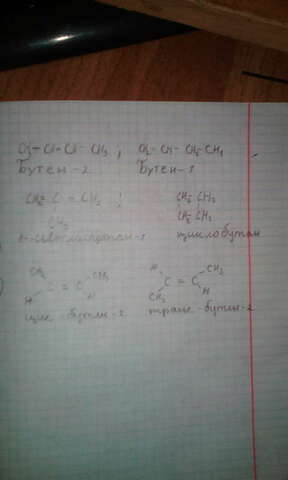 CH3-CH=CH-CH3; CH2-CH-CH2-CH3
Бутен-2 Бутен-1
CH2= C - CH3; CH2 CH2
CH3 CH2 CH2
циклобутан
CH3 CH3 H CH3
C = C C = C
H H CH3 H
цис-бутен-2 транс-бутен-2